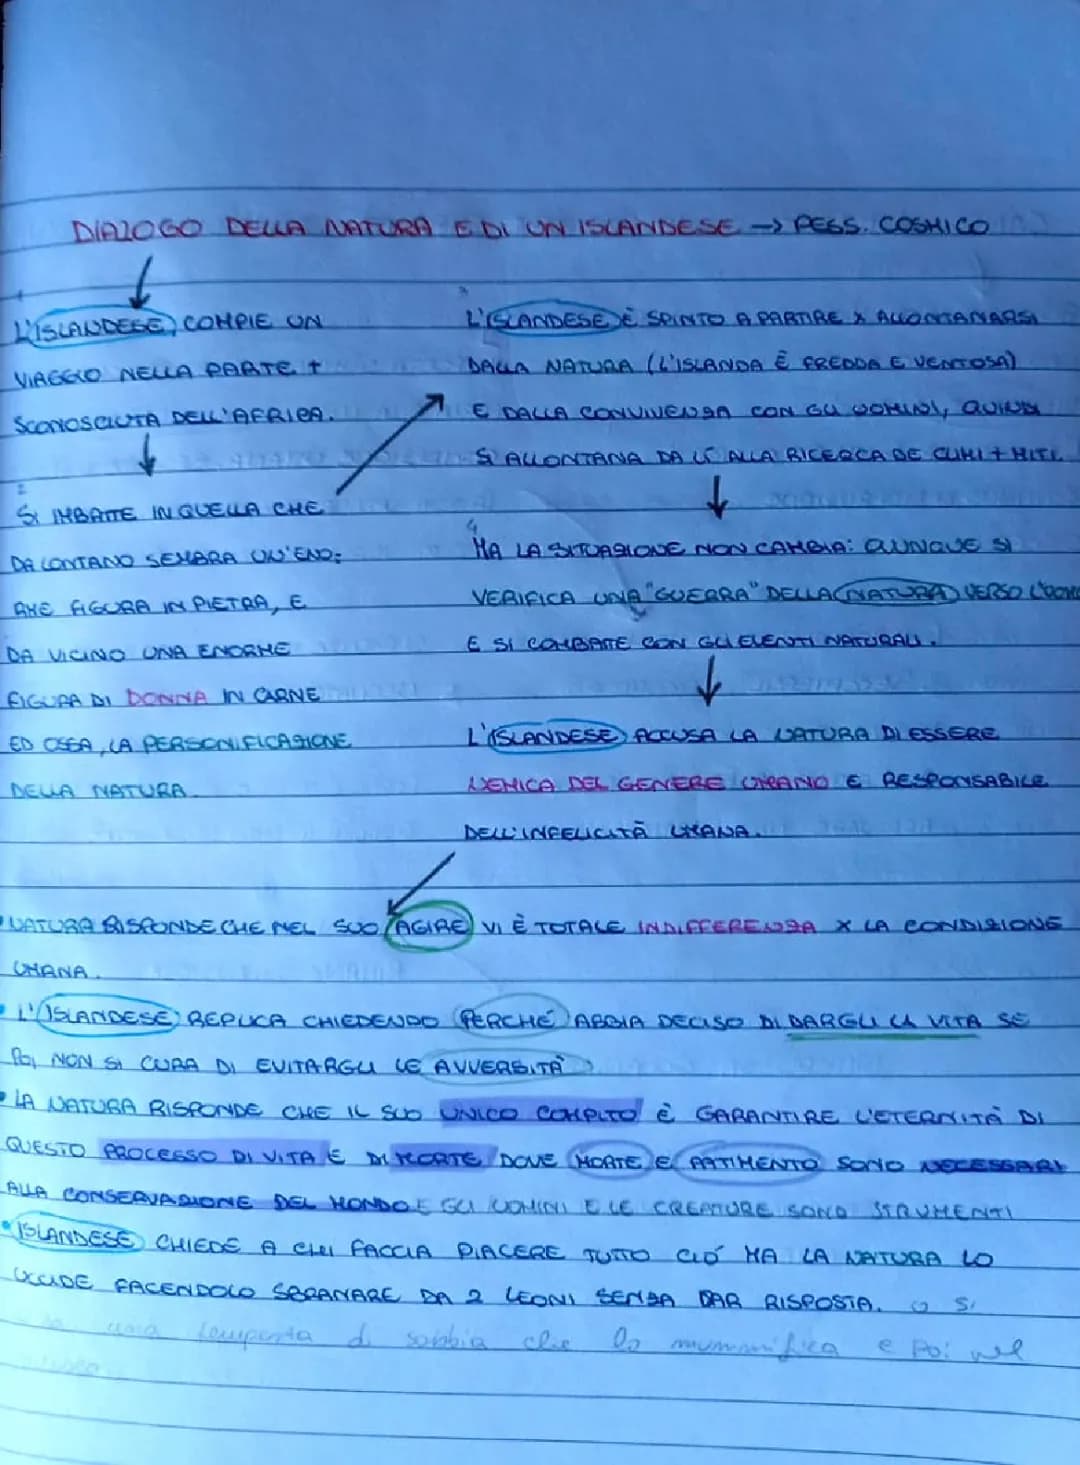 DIALOGO DELLA NATURA E DI UN ISLANDESE → PESS. COSMICO
L'ISLANDESE COMPIE UN
VIAGGIO NELLA PARTE +
SCONOSCIUTA DELL'AFRICA.
2
SI IMBATTE IN QUELLA CHE
DA LONTANO SEMBRA UN'ENO=
RME FIGURA IN PIETRA, E
DA VICINO UNA ENORME
FIGURA DI DONNA IN CARNE
ED OSSA, LA PERSONIFICAZIONE
DELLA NATURA.
3
L'ISLANDESE È SPINTO A PARTIRE X ALLONTANARSI
DALLA NATURA (L'ISLANDA È FREDDA E VENTOSA)
E DALLA CONVIVENZA CON GLI UOMINI, QUINDI
SI ALLONTANA DA LÌ ALLA RICERCA DE CLIMI + MITI.
4
MA LA SITUAZIONE NON CAMBIA: OVUNQUE SI
VERIFICA UNA "GUERRA" DELLA NATURA VERSO L'UOMO
E SI COMBATTE CON GLI ELENTI NATURALI.
L'ISLANDESE ACCUSA LA NATURA DI ESSERE
NEMICA DEL GENERE UMANO E RESPONSABILE
DELL'INFELICITÀ UMANA.
NATURA RISPONDE CHE NEL SUO AGIRE VI È TOTALE INDIFFERENZA X LA CONDIZIONE
UMANA.
• L'ISLANDESE REPLICA CHIEDENDO PERCHÉ ABBIA DECISO DI DARGLI LA VITA SE
POI NON SI CURA DI EVITARGLI LE AVVERSITÀ
• LA NATURA RISPONDE CHE IL SUO UNICO COMPITO È GARANTIRE L'ETERNITÀ DI
QUESTO PROCESSO DI VITA E DI MORTE DOVE MORTE E PATIMENTO SONO NECESSARI
ALLA CONSERVAZIONE DEL MONDO E GLI UOMINI E LE CREATURE SONO STRUMENTI
• ISLANDESE CHIEDE A CHI FACCIA PIACERE TUTTO CIÒ MA LA NATURA LO
UCCIDE FACENDOLO SBRANARE DA 2 LEONI SENZA DAR RISPOSTA. O SI
una tempesta di sabbia che lo mummifica e poi nel